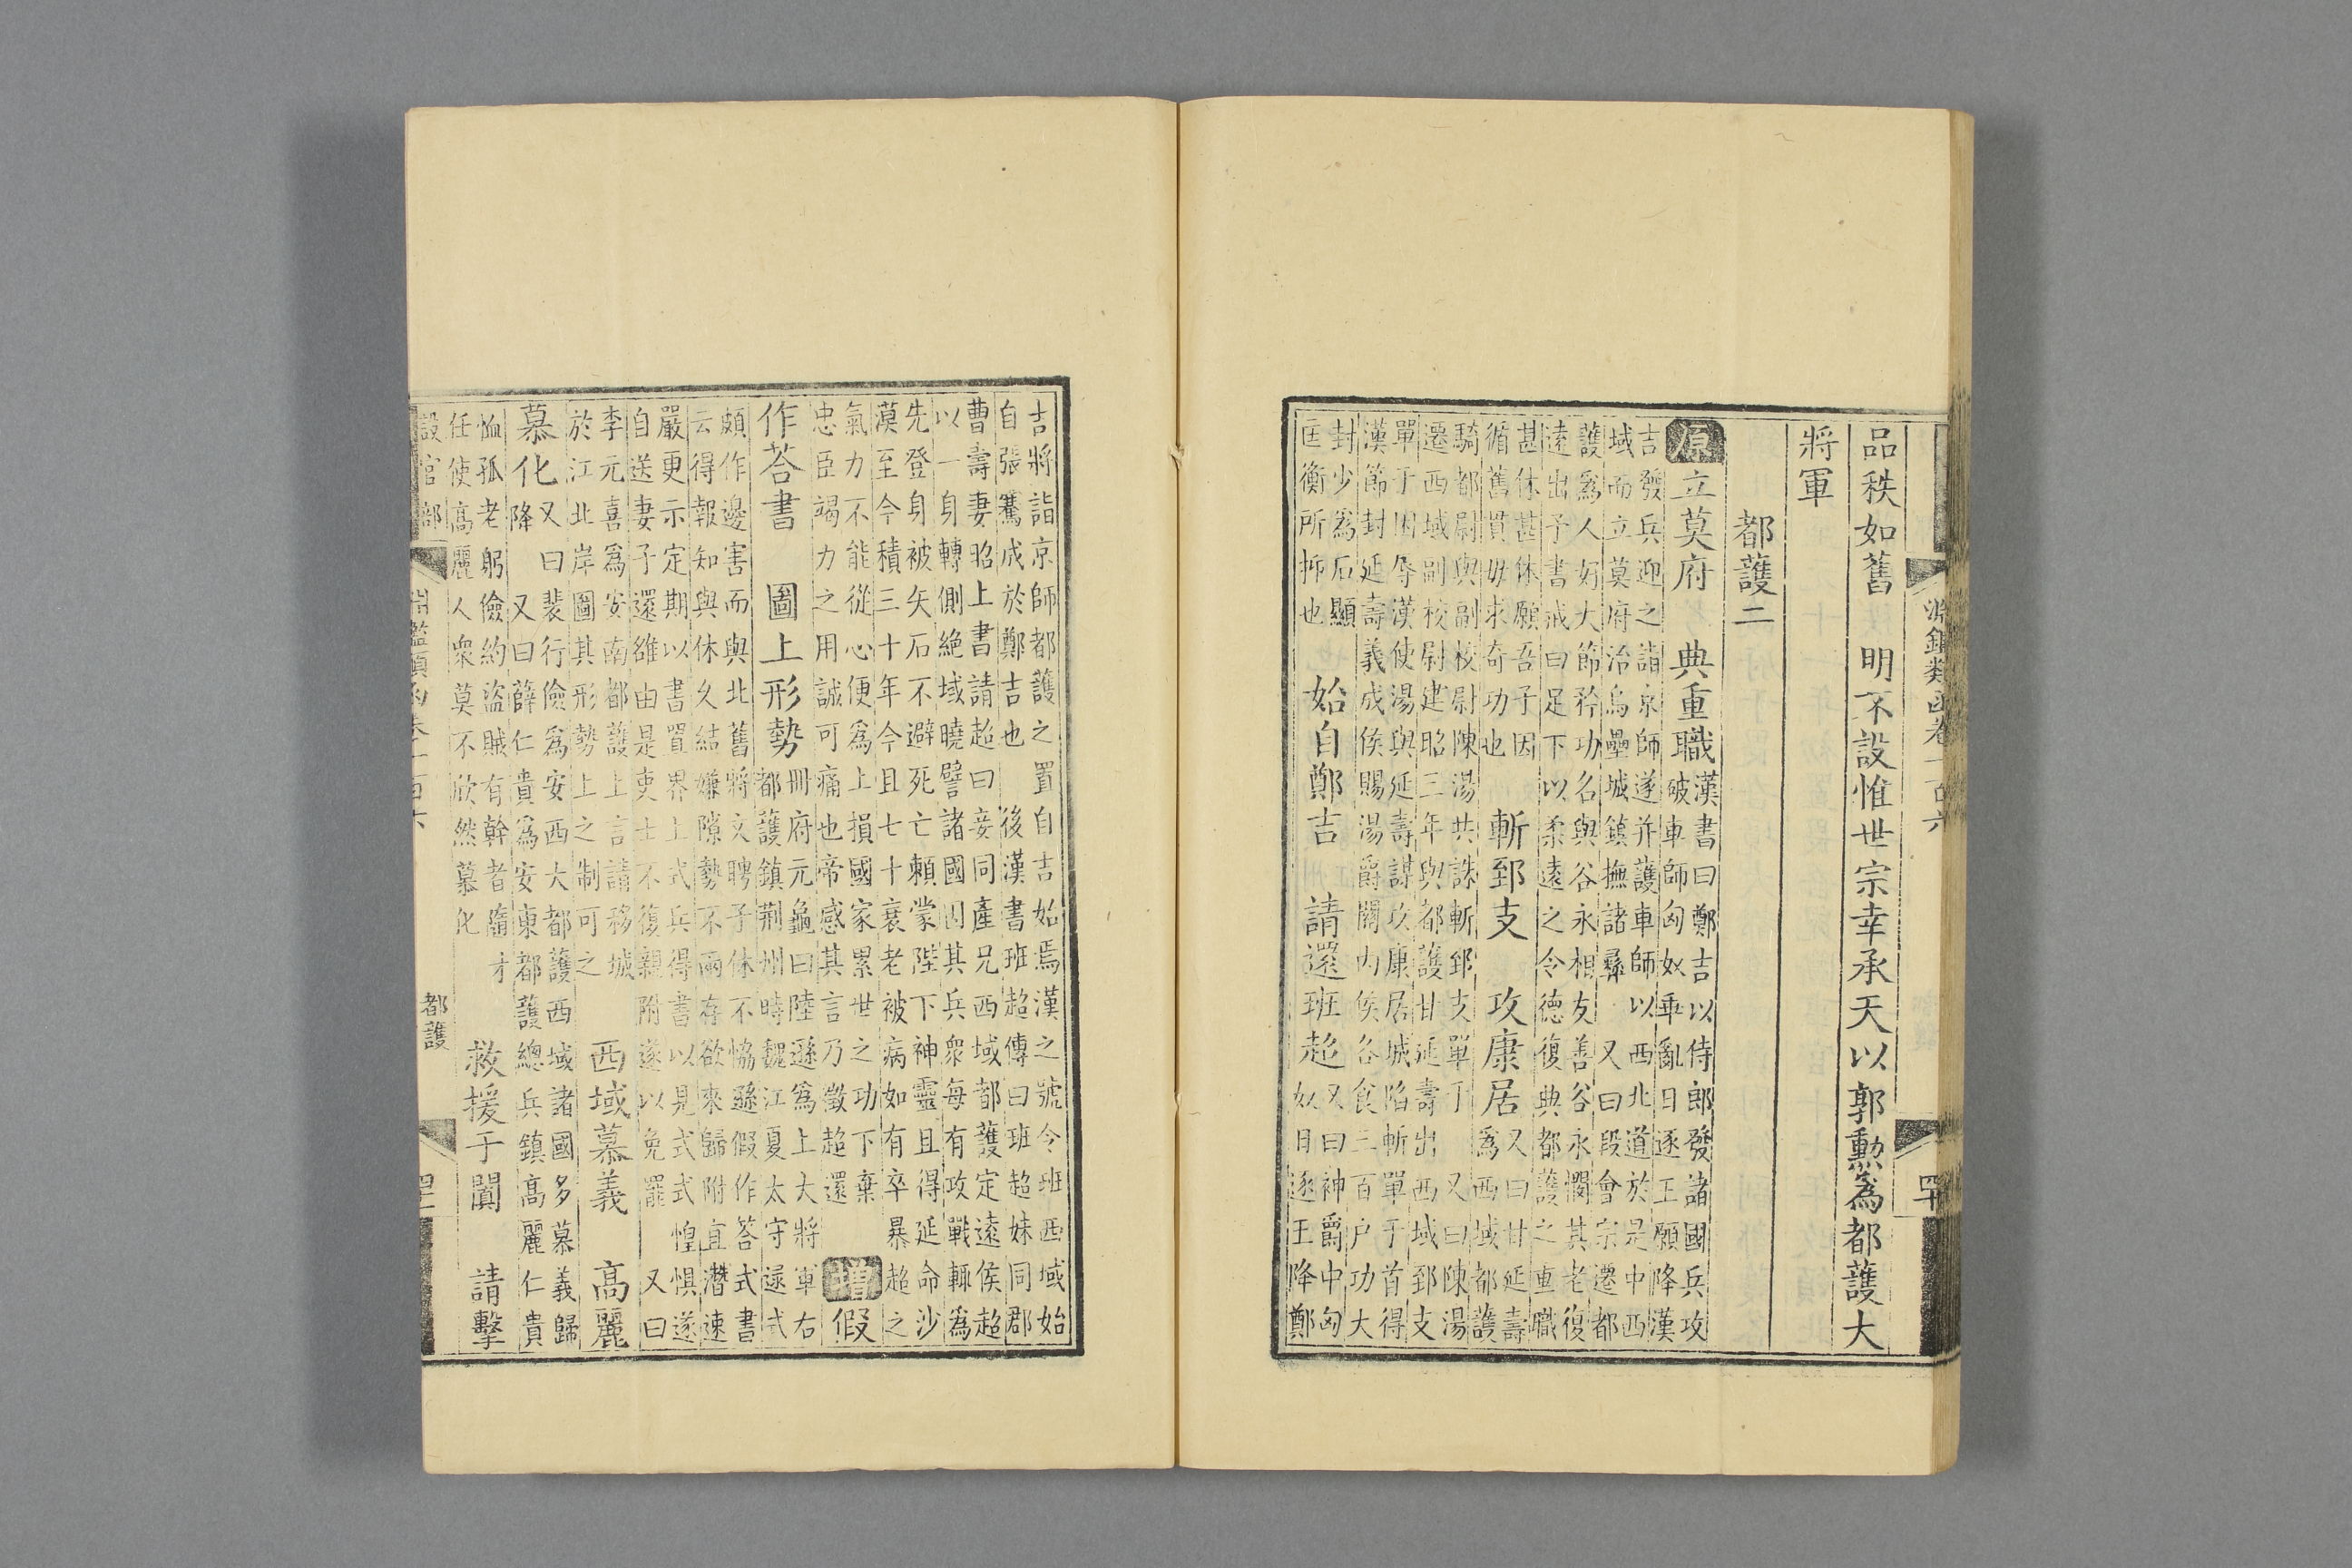 淵鑑類函卷一百六 四十
品秩如舊 明不設惟世宗幸承天以郭勳為都護大
將軍
都護二
原立莫府 典重職
漢書曰鄭吉以侍郎發諸國兵攻
破車師匈奴乖亂日逐王願降漢
吉發兵迎之詣京師遂并護車師以西北道於是中西
域而立莫府治烏壘城鎮撫諸彞 又曰段會宗遷都
護為人好大節矜功名與谷永相友善谷永憫其老復
遠出予書戒曰足下以柔遠之令德復典都護之重職
甚休甚休願吾子因
循舊貫毋求奇功也
斬郅支 攻康居
又曰甘延壽
為西域都護
騎都尉與副校尉陳湯共誅斬郅支單于 又曰陳湯
遷西域副校尉建昭三年與都護甘延壽出西域郅支
單于困辱漢使湯與延壽謀攻康居城陷斬單于首得
漢節封延壽義成侯賜湯爵關內侯各食三百戶功大
封少為石顯
匡衡所抑也
始自鄭吉 請還班超
又曰神爵中匈
奴日逐王降鄭
吉將詣京師都護之置自吉始焉漢之號令班西域始
自張騫成於鄭吉也 後漢書班超傳曰班超妹同郡
曹壽妻昭上書請超曰妾同產兄西域都護定遠侯超
以一身轉側絕域曉譬諸國因其兵衆每有攻戰輒為
先登身被矢石不避死亡賴蒙陛下神靈且得延命沙
漠至今積三十年今且七十衰老被病如有卒暴超之
氣力不能從心便為上損國家累世之功下棄
忠臣竭力之用誠可痛也帝感其言乃徵超還
增假
作荅書 圖上形勢
冊府元龜曰陸遜為上大將軍右
都護鎮荆州時魏江夏太守逯式
頗作邊害而與北舊將文聘子休不恊遜假作荅式書
云得報知與休久結嫌隙勢不兩存欲來歸附直潛速
嚴更示定期以書置界上式兵得書以見式式惶懼遂
自送妻子還雒由是吏士不復親附遂以免罷 又曰
李元喜為安南都護上言請移城
於江北岸圖其形勢上之制可之
西域慕義 高麗
慕化
又曰裴行儉為安西大都護西域諸國多慕義歸
降 又曰薛仁貴為安東都護總兵鎮高麗仁貴
恤孤老躬儉約盜賊有幹者隨才
任使高麗人衆莫不欣然慕化
救援于闐 請擊
設官部 淵鑑類函卷一百六 都護